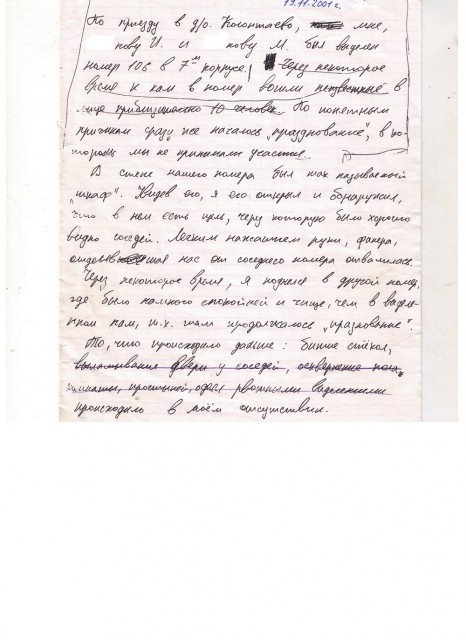 19.11.2001г.
По приезду в д/о. Колонтаево, мне,
нову И. и кову М. был выделен
номер 106 в 7-м корпусе. Через некоторое
время к нам в номер вошли неизвестные в
лице приблизительно 10 человек. По понятным
причинам сразу же началось "празднование", в ко-
тором мы не принимали участие.
В стене нашего номера был так называемый
"шкаф". Увидев его, я его открыл и обнаружил,
что в нем есть щель, через которую было хорошо
видно соседей. Легким нажатием руки, фанера,
отделявшая нас от соседнего номера отвалилась.
Через некоторое время, я поднялся в другой номер,
где было намного спокойней и чище, чем в выделе-
нном нам, т.к. там продолжалось "празднование".
То, что происходило дальше: битие стёкол,
выламывания двери у соседей, осквернение пола
комнаты, простыней, одеял рвотными выделениями
происходило в моём отсутствии.